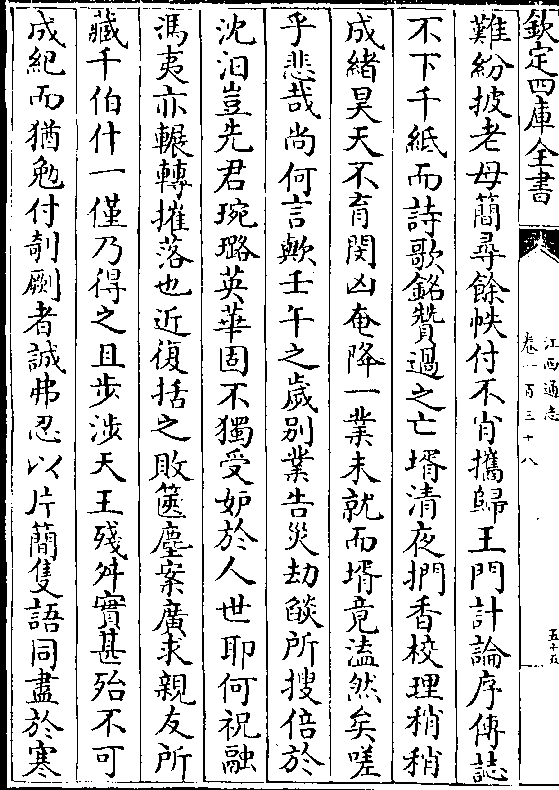 欽定四庫全書
江西通志
卷一百三十八
五十五
難紛披老母簡尋餘帙付不肖攜歸王門計論序傳誌
不下千紙而詩歌銘贊過之亡壻清夜捫香校理稍稍
成緒昊天不育閔凶奄降一業未就而壻竟溘然矣嗟
乎悲哉尚何言歟壬午之歲别業告災劫燄所搜倍於
沈汨豈先君琬璐英華固不獨受妒於人世耶何祝融
馮夷亦輾轉摧落也近復括之敗篋塵案廣求親友所
藏千伯什一僅乃得之且步涉天王殘舛實甚殆不可
成紀而猶勉付剞劂者誠弗忍以片簡隻語同盡於寒